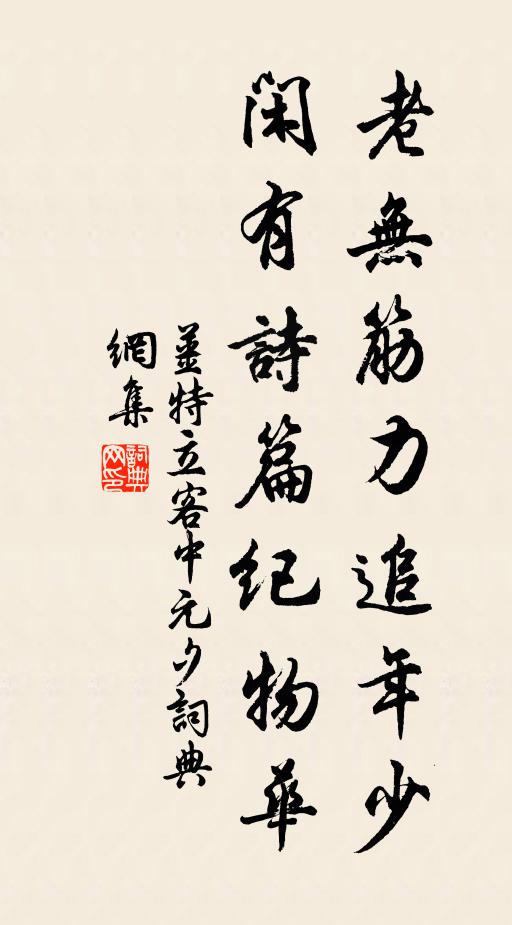 老無筋力追年少
閑有詩篇紀物華
姜特立客中元夕詞典
網集
詞典网印